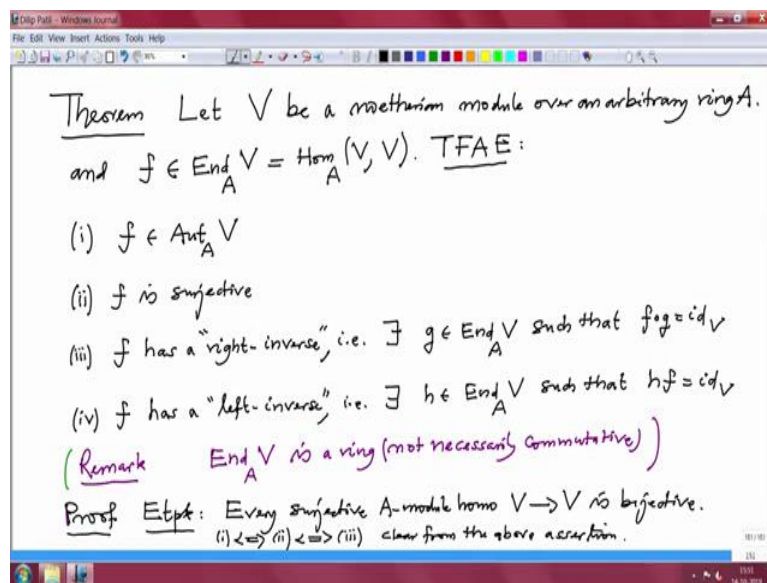 Dilip Patil - Windows Journal
File Edit View Insert Actions Tools Help
Theorem Let V be a noetherian module over an arbitrary ring A.
and f ∈ End_A V = Hom_A (V, V). TFAE:
(i) f ∈ Aut_A V
(ii) f is surjective
(iii) f has a "right-inverse", i.e. ∃ g ∈ End_A V such that f∘g = id_V
(iv) f has a "left-inverse", i.e. ∃ h ∈ End_A V such that hf = id_V
(Remark End_A V is a ring (not necessarily commutative))
Proof Etpt: Every surjective A-module homo V → V is bijective.
(i) <=> (ii) <=> (iii) clear from the above assertion.
151
15:51